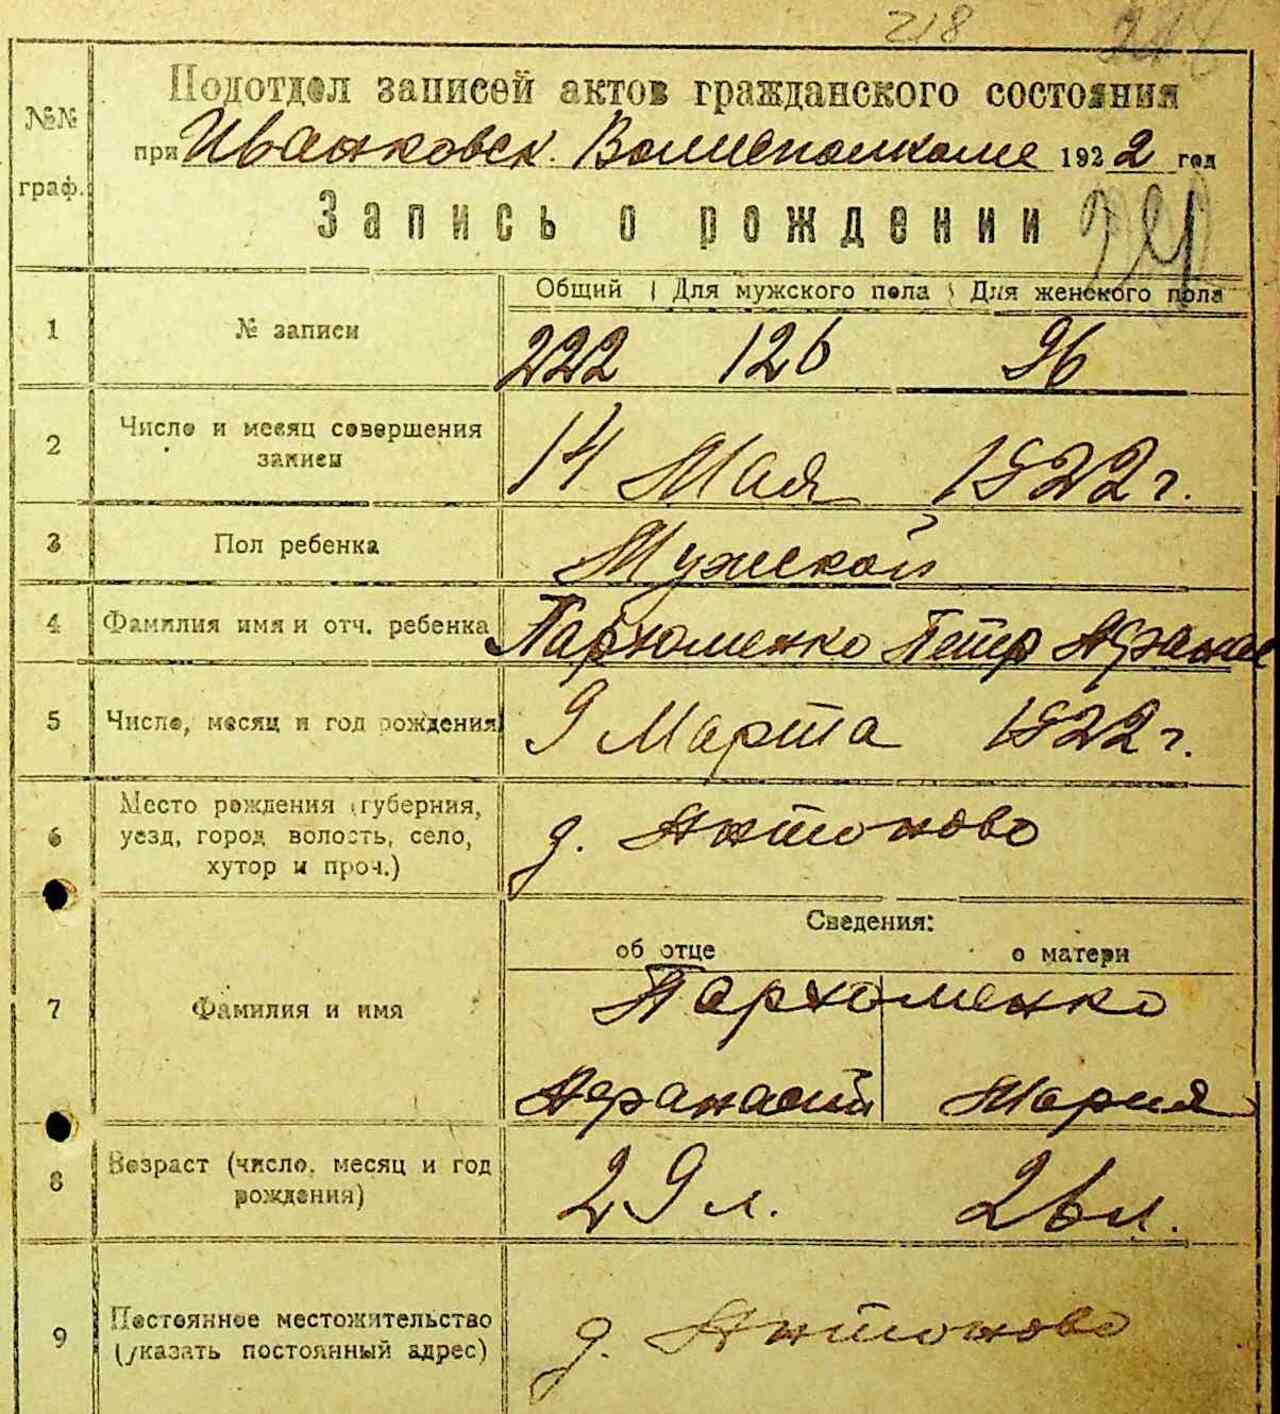 218
№№ граф.
Подотдел записей актов гражданского состояния
при Иванковск. Волисполкоме 1922 год
Запись о рождении
Общий Для мужского пола Для женского пола
1 № записи 222 126 96
2 Число и месяц совершения записи 14 Мая 1922 г.
3 Пол ребенка Мужской
4 Фамилия имя и отч. ребенка Пархоменко Петр Афанас
5 Число, месяц и год рождения 9 Марта 1922 г.
6 Место рождения (губерния,
уезд, город волость, село,
хутор и проч.)
д. Антоново
Сведения:
об отце о матери
7 Фамилия и имя
Пархоменко
Афанасий Мария
8 Возраст (число, месяц и год
рождения)
29 л. 26 л.
9 Постоянное местожительство
(указать постоянный адрес)
д. Антоново